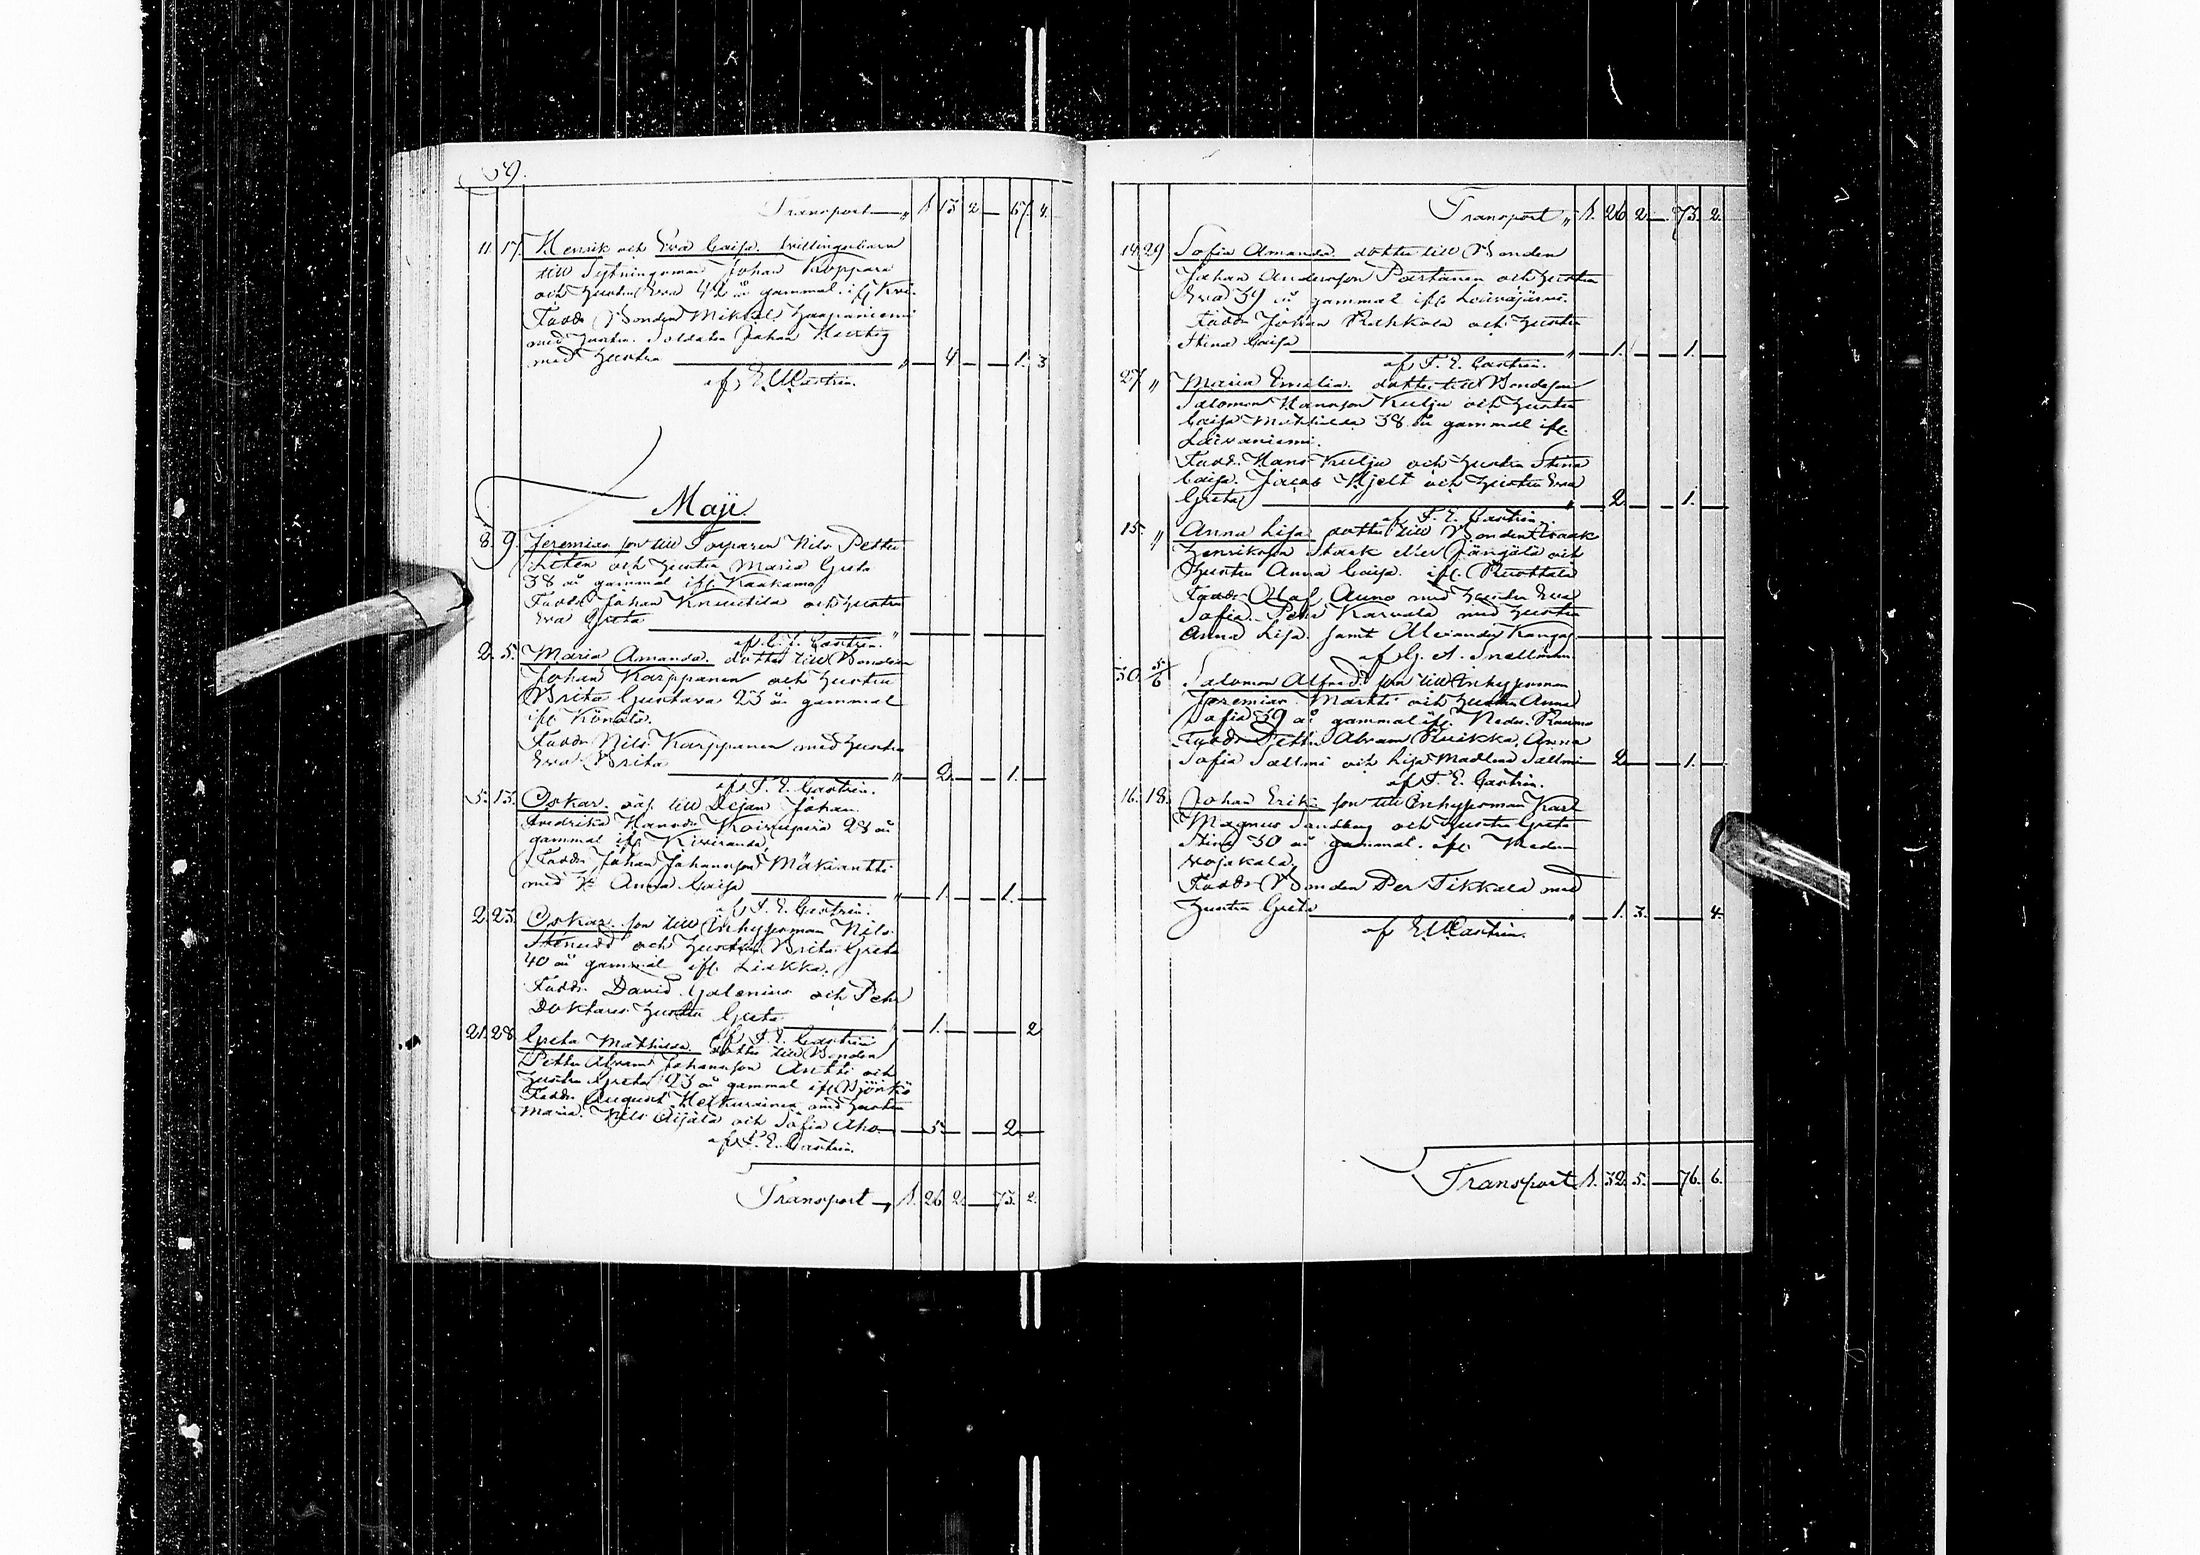 59.
Transport — „ 1. 13 2 — 67. 4.
11. 17. Henrik och Eva Caisa. tvillingabarn
till Sytningsman Johan Koppara
och hustru Eva 42 år gammal. ifr.
Fadd: Bonden Mikkel Haapaniemi
med hustru. Soldaten Johan Hurtig
med hustru — „ 4 — 1. 3
af E. W. Castrén.
Maji
8. 9. Jeremias son till Torparen Nils Petter
och hustru Maria Greta
38 år gammal ifr. Kaakamo
Fadd: Johan Knuutila och hustru
Eva Greta — „
af Castrén.
2. 5. Maria Amanda. dotter till Bonden
Johan Karppanen och hustru
Brita Gustava 23 år gammal
ifr. Könölä.
Fadd: Nils Karppanen med hustru
Eva Brita — „ 2 — 1.
af F. E. Castrén.
5. 13. Oskar. oäg. till Dejan Johan
Fredrika Hansdr Koivuperä 28 år
gammal ifr. Kiviranda,
Fadd: Johan Johansson Mäkiantti
med H. Anna Caisa — „ 1. — 1.
af F. E. Castrén.
2. 23. Oskar. son till Inhysesman Nils
Stenudd och hustru Brita Greta
40 år gammal ifr. Liakka.
Fadd: David Galenius och Pehr
Doktares hustru Greta — „ 1. — 2
af F. E. Castrén
21. 28. Greta Mathilda. dotter till Bonden
Petter Abram Johansson Antti och
hustru Greta 23 år gammal ifr. Björkö
Fadd: August med hustru
Maria. Nils Äijälä och Sofia Aho — 5 — 2
af F. E. Castrén.
Transport — „ 1. 26 2. — 73. 2.
Transport „ 1. 26 2. — 73. 2.
14. 29 Sofia Amanda. dotter till Bonden
Johan Andersson Partanen och hustru
Eva 39 år gammal ifr. Laivajärvi.
Fadd: Johan Ruhkala och hustru
Stina Caisa — „ 1. — 1.
af F. E. Castrén.
27. „ Maria Emilia. dotter till Bondeson
Salomon Hansson Kulju och hustru
Caisa Mathilda 38 år gammal ifr.
Laivaniemi.
Fadd: Hans Kulju och hustru Stina
Caisa. Jacob Hjelt och hustru Eva
Greta — „ 2 — 1.
af F. E. Castrén.
15. „ Anna Lisa dotter till Bonden Isaak
Henriksson Staak eller och
hustru Anna Caisa. ifr. Ruottala
Fadd: Olof Auno med hustru Eva
Sofia. Pehr Karvala med hustru
Anna Lisa. samt Alexander Kangas —
af G. A. Snellman.
30. 5/6 Salomon Alfred. son till Inhysesman
Jeremias Martti och hustru Anna
Sofia 39 år gammal ifr. Neder Raumo
Fadd: Petter Abram Ruikka, Anna
Sofia Sallmi och Lisa Madlena Sallmi — 2 — 1.
af F. E. Castrén.
16. 18. Johan Erik. son till Inhysesman Karl
Magnus Sandberg och hustru Greta
Stina 30 år gammal. ifr. Neder
vojakala,
Fadd: Bonden Per Tikkala med
hustru Greta — „ 1. 3. — 4.
af E. W. Castrén.
Transport 1. 32. 5. — 76. 6.